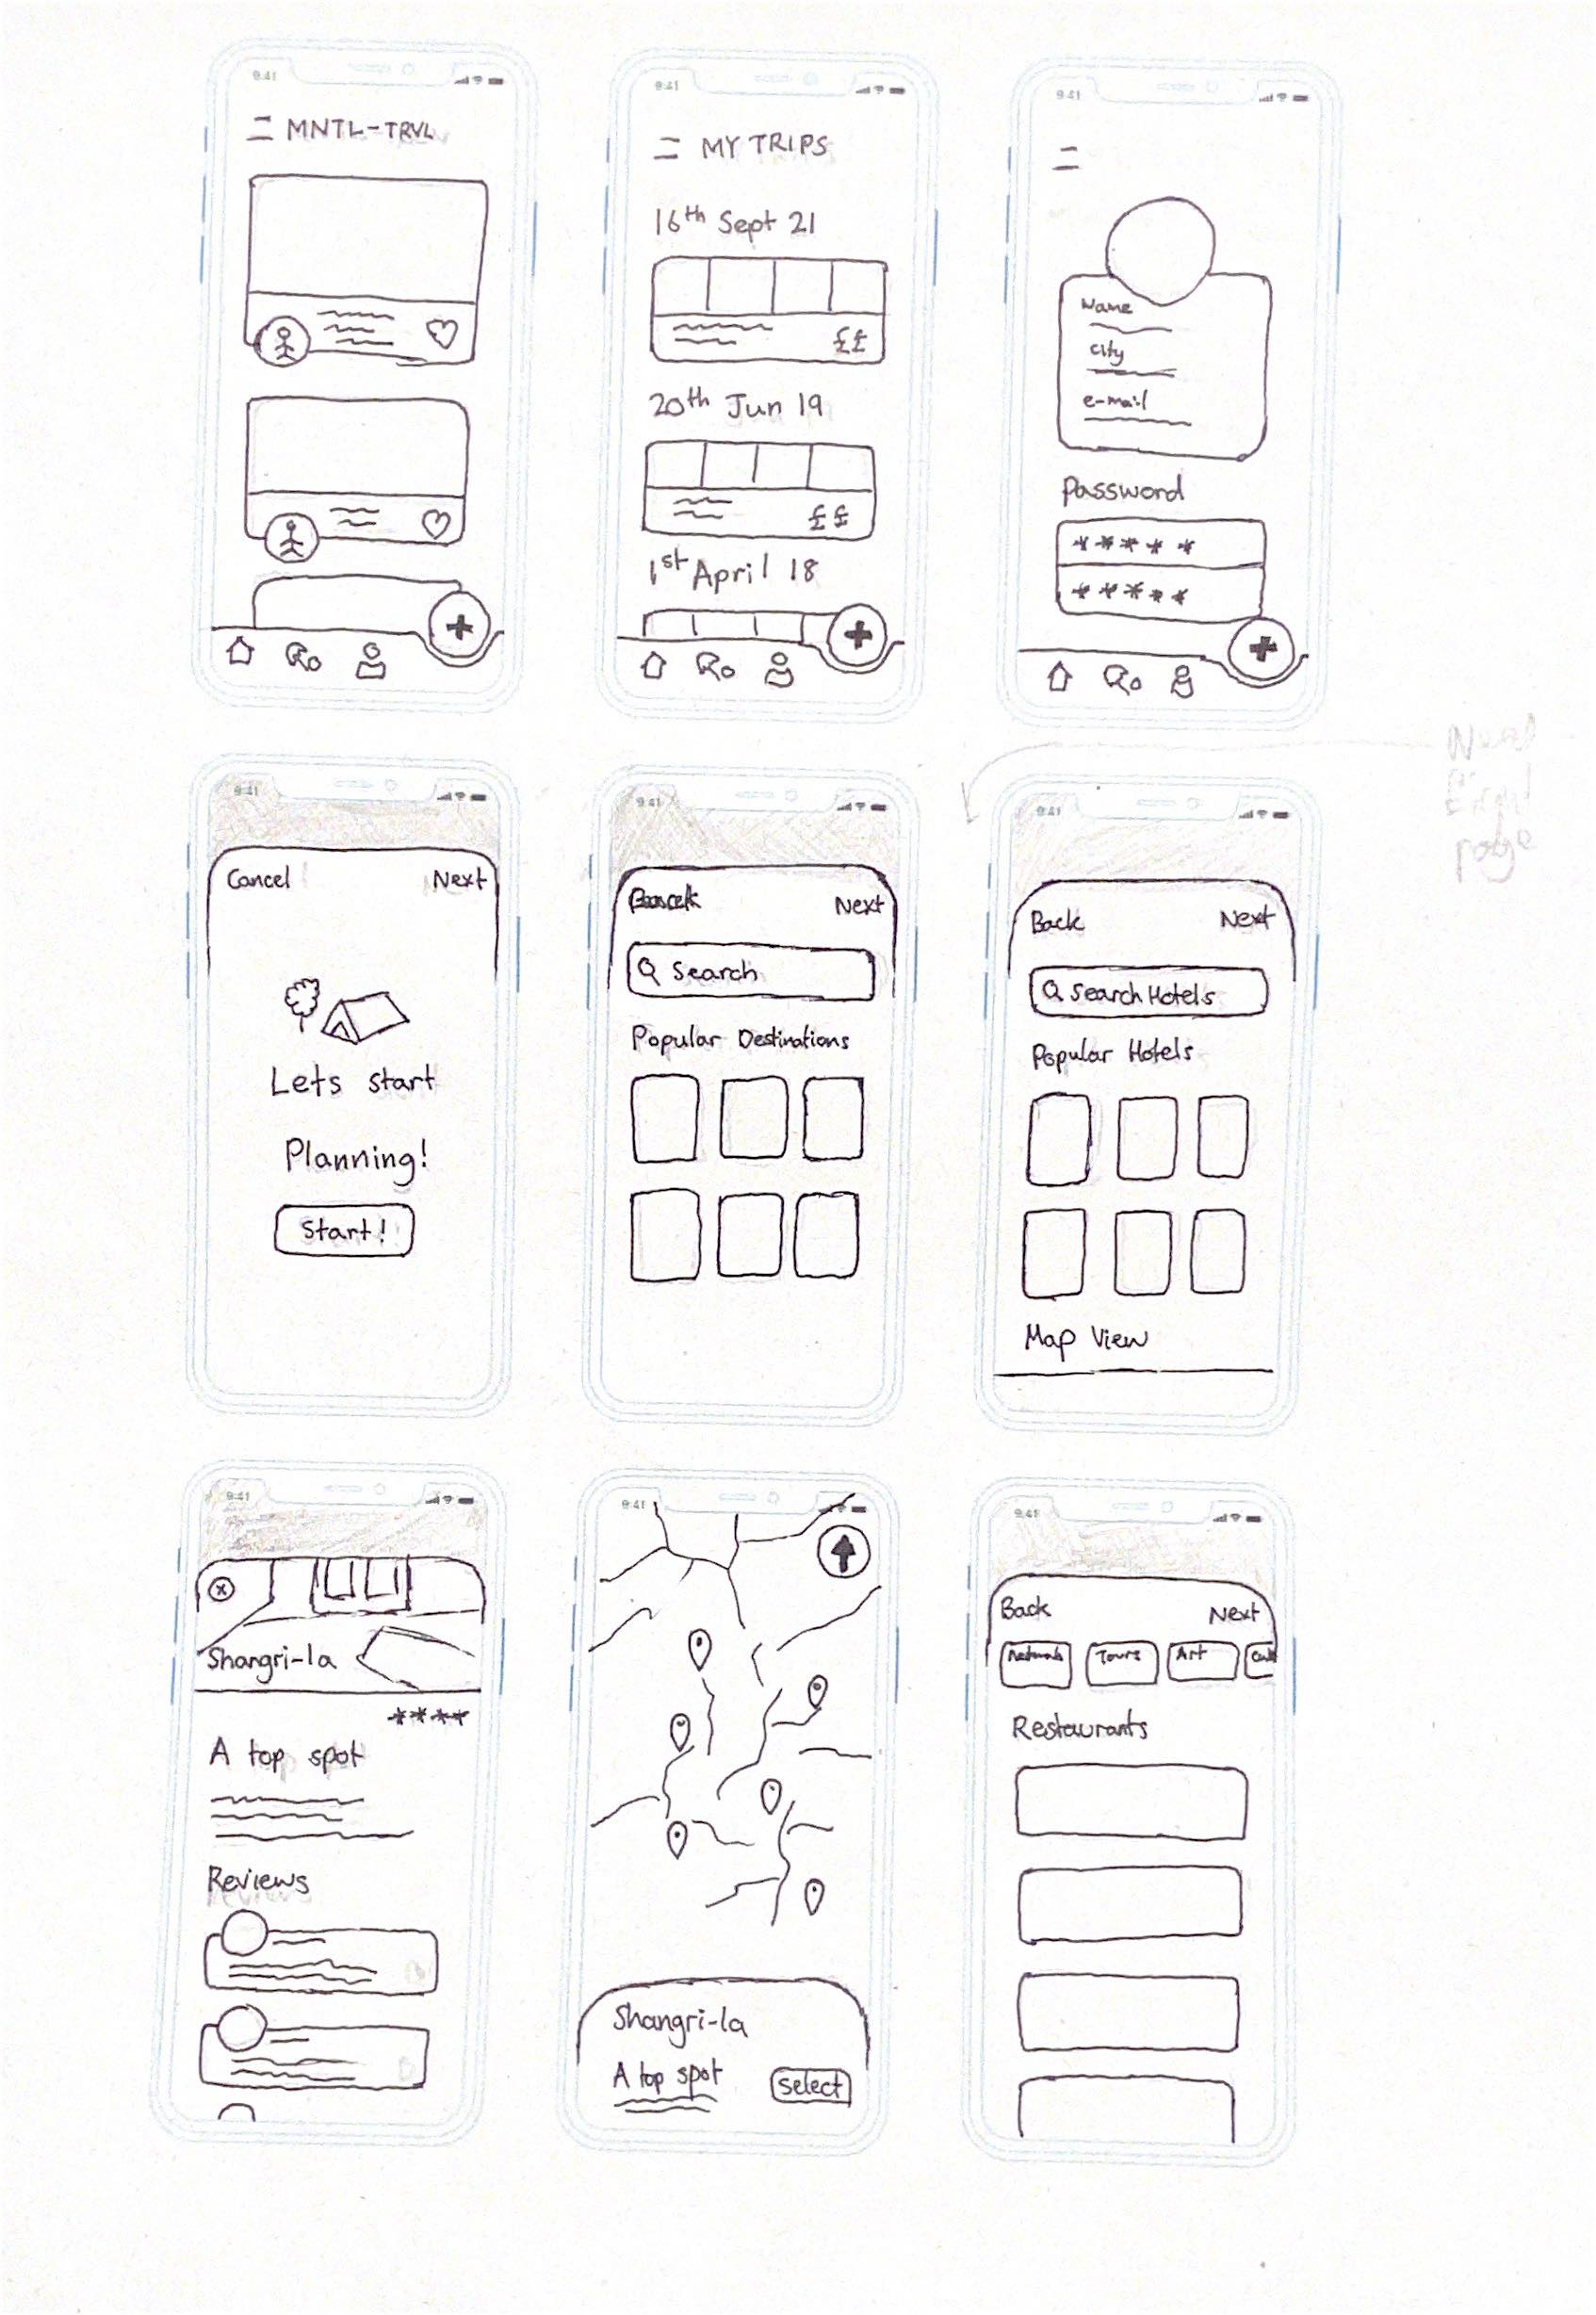 9:41
MNTL-TRVL
9:41
MY TRIPS
16th Sept 21
££
20th Jun 19
££
1st April 18
9:41
Name
City
e-mail
Password
*****
*****
9:41
Cancel Next
Lets start
Planning!
Start!
9:41
Next
Search
Popular Destinations
Need
page
9:41
Back Next
Search Hotels
Popular Hotels
Map View
9:41
Shangri-la
****
A top spot
Reviews
9:41
Shangri-la
A top spot
Select
9:41
Back Next
Tours Art
Restaurants